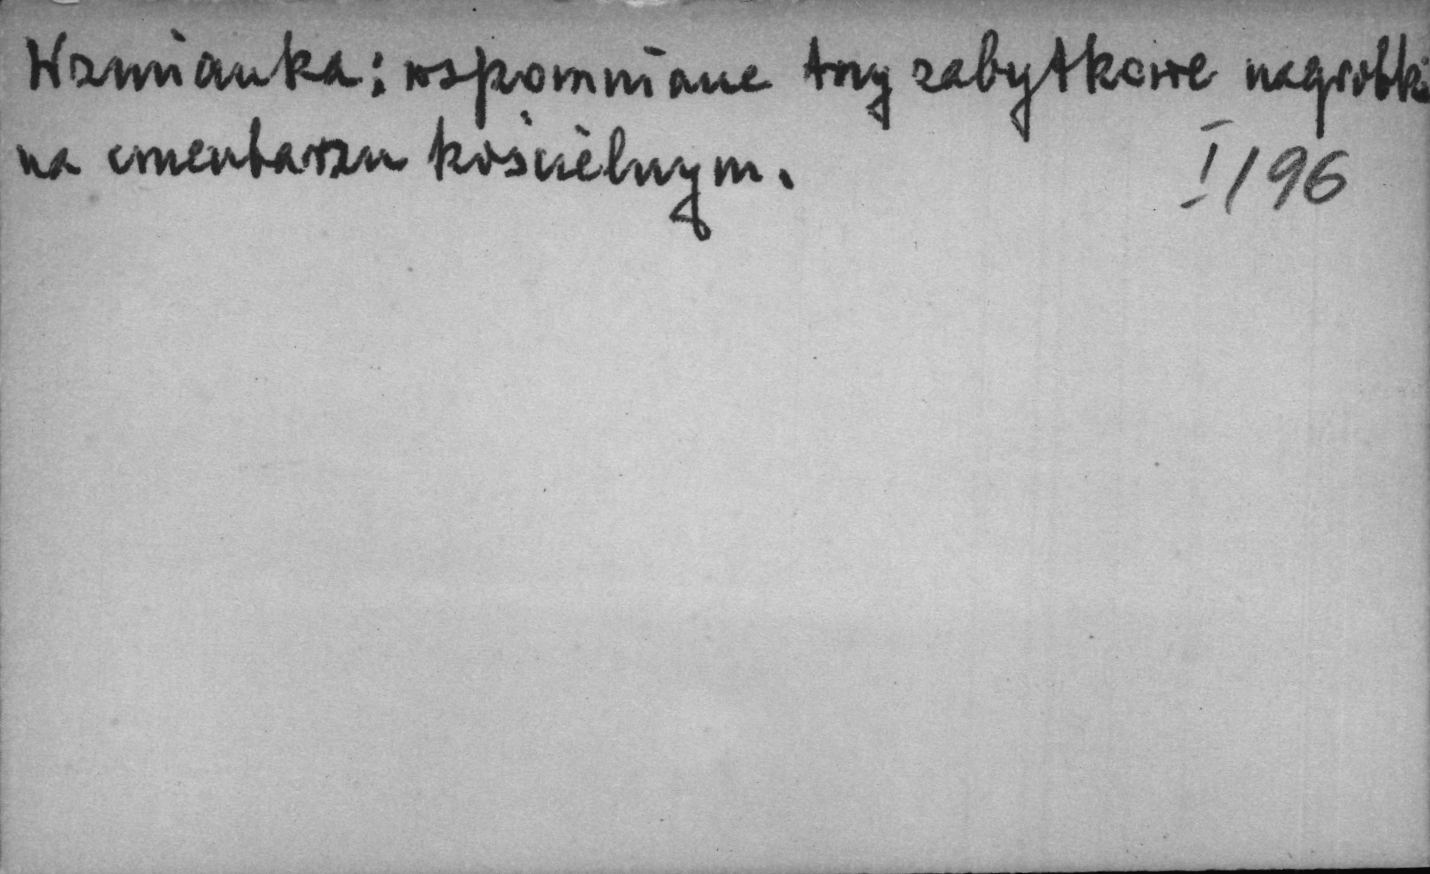 Wzmianka: wspomniane trzy zabytkowe nagrobki
na cmentarzu kościelnym.
I/96